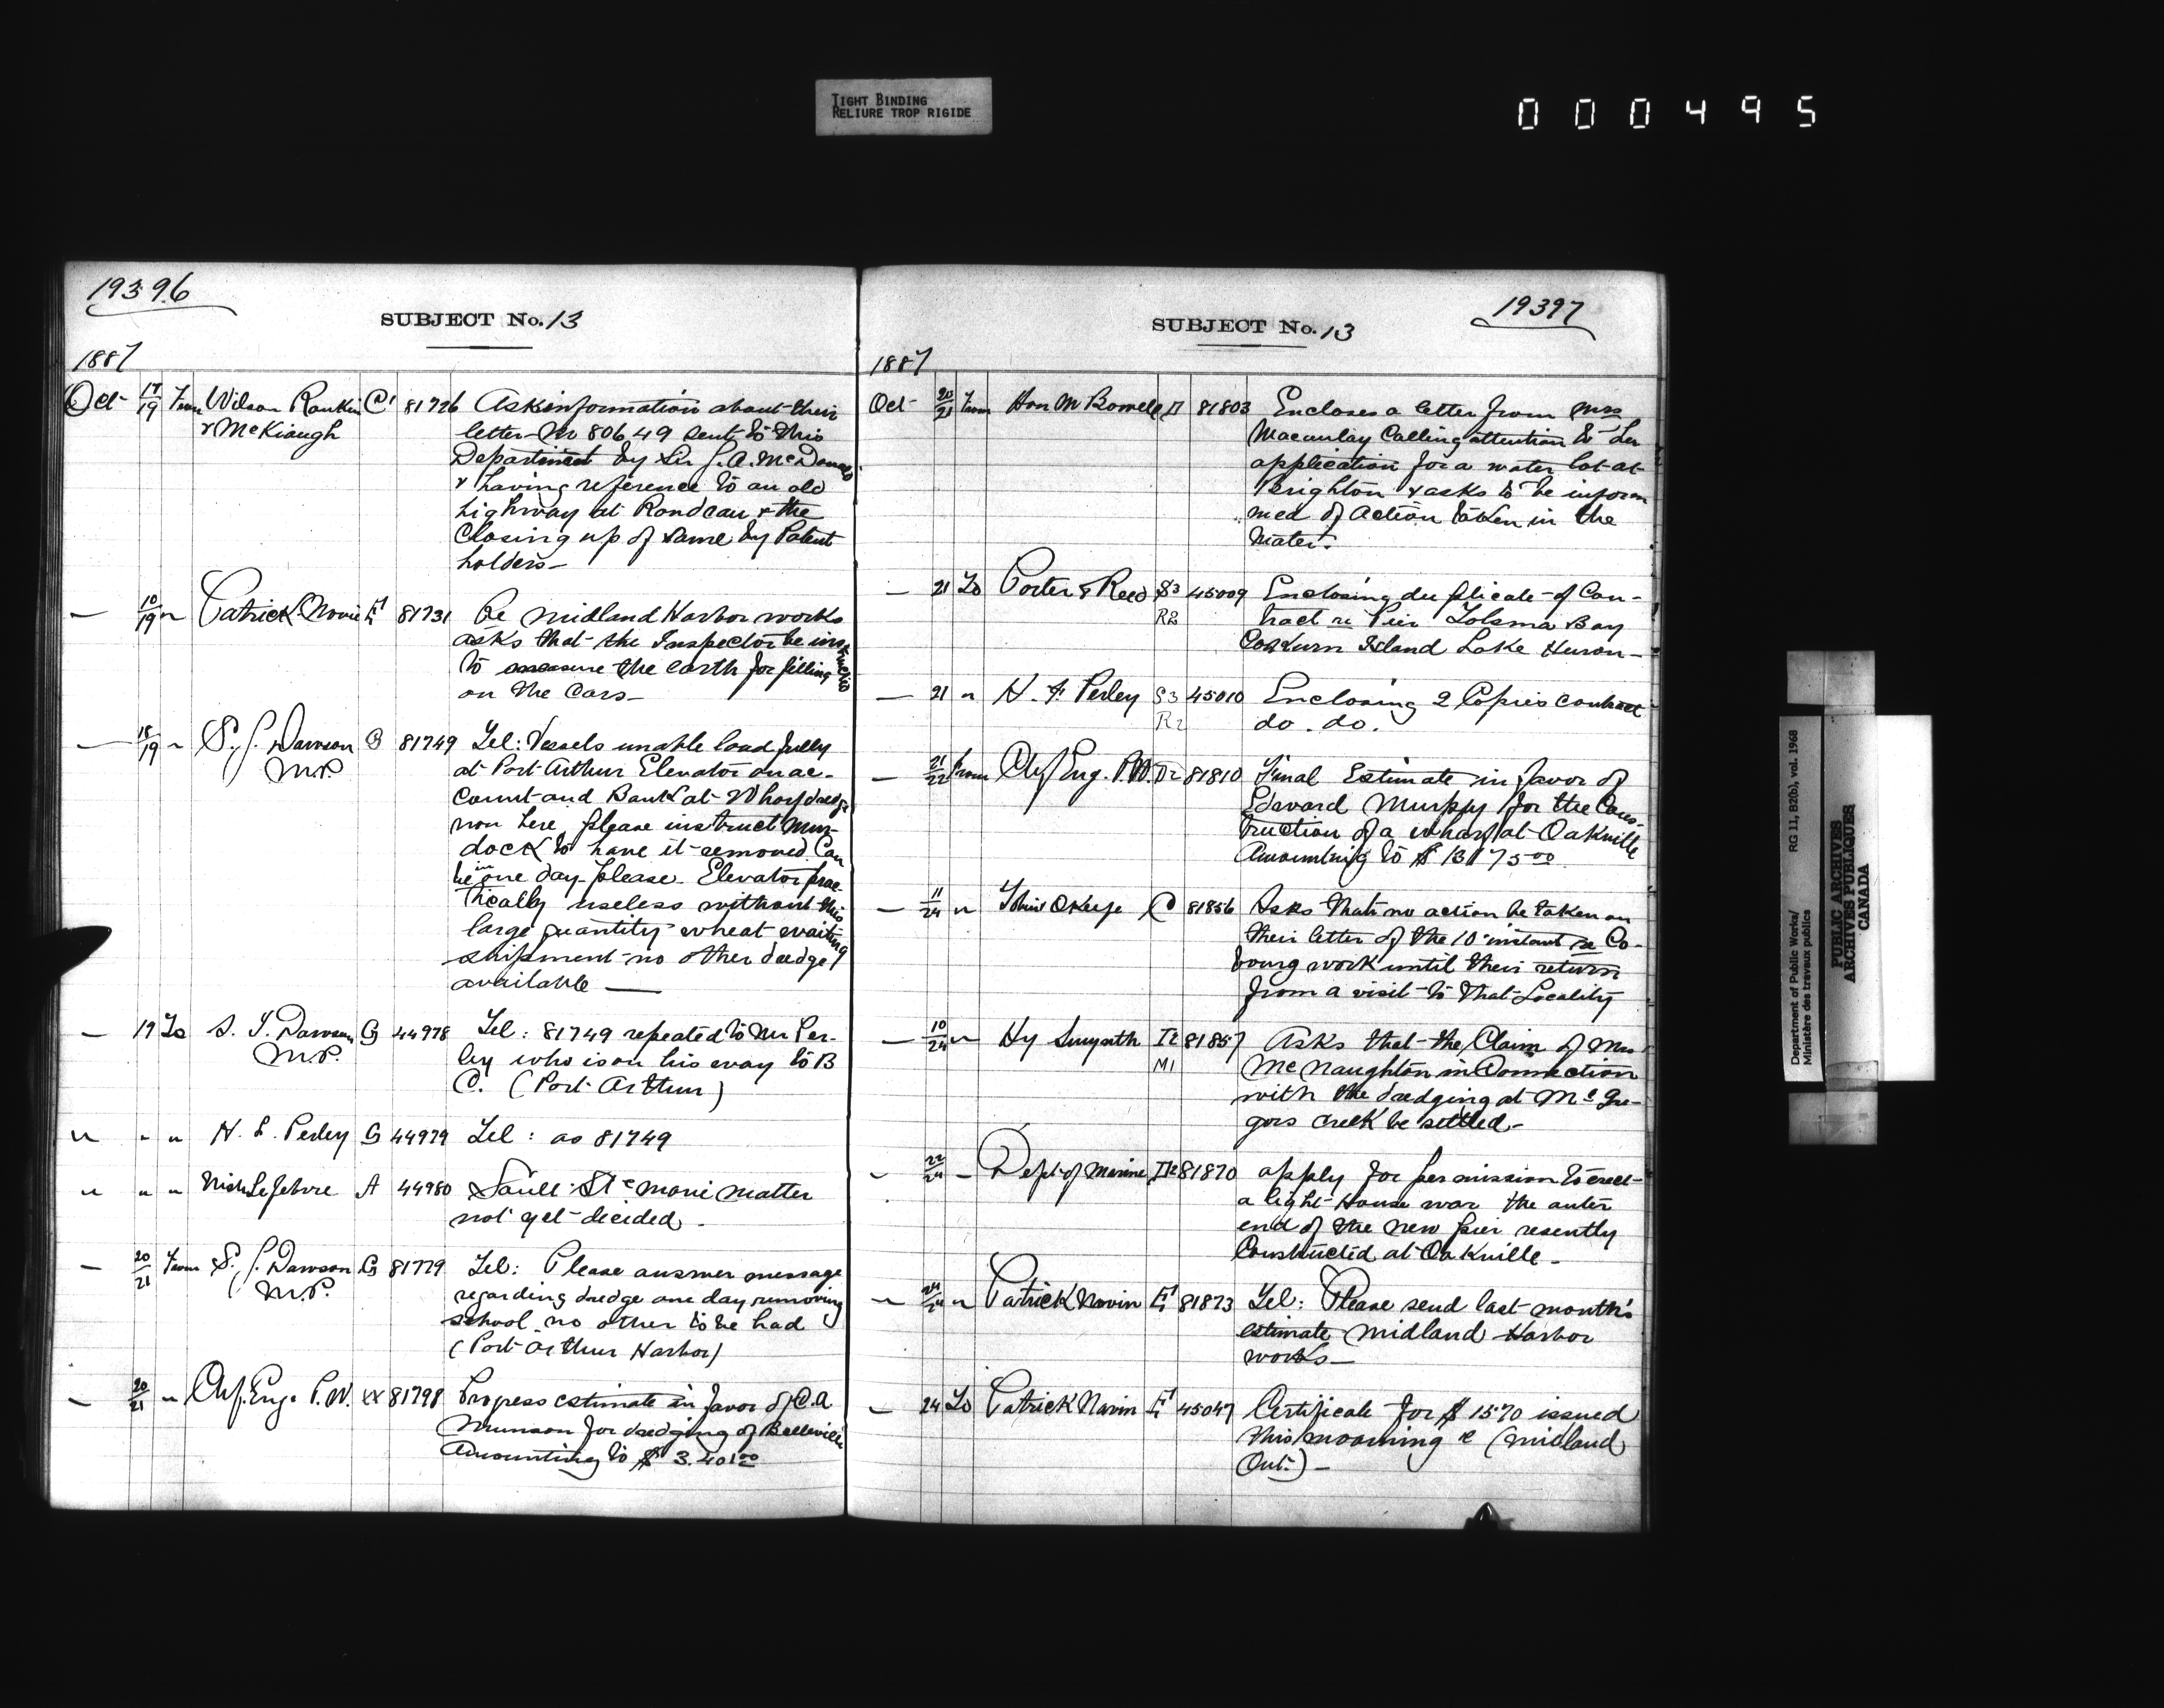 TIGHT BINDING
RELIURE TROP RIGIDE
000495
19396
SUBJECT No. 13
1887
Oct 17/19 From Wilson Rankin C1 81726 Ask information about their
& McKiaugh letter No 80649 sent to this
Department by Sir J. A. McDonald
& having reference to an old
highway at Rondeau & the
Closing up of same by Patent
holders —
— 10/19 " Patrick Navin E1 81731 Re Midland Harbor works
asks that the Inspector be instructed
to measure the earth for filling
on the Cars —
— 18/19 " S. J. Dawson G 81749 Tel: Vessels unable load fully
M.P. at Port Arthur Elevator on ac-
count and Bank at Wharf dredge
now here, please instruct Mur-
dock to have it removed. Can
be in one day please. Elevator prac-
tically useless without this
large quantity wheat waiting
shipment no other dredge
available —
— 19 To S. J. Dawson G 44978 Tel: 81749 repeated to Mr Per-
M.P. ley who is on his way to B
C. (Port Arthur)
" " " H. F. Perley G 44979 Tel: as 81749
" " " Lefebvre A 44980 Sault Ste Marie matter
not yet decided —
— 20/21 From S. J. Dawson G 81779 Tel: Please answer message
M.P. regarding dredge one day removing
school no other to be had
(Port Arthur Harbor)
— 20/21 " Chf. Eng. P.W. 81798 Progress estimate in favor of C. A
Munson for dredging of Belleville
Amounting to $ 3.401 00
19397
SUBJECT No. 13
1887
Oct 20/21 From Hon M Bowell 81803 Encloses a letter from Mrs
Macaulay Calling attention to her
application for a water lot at
Brighton & asks to be infor
med of action taken in the
Mater.
— 21 To Porter & Reed S3 45009 Enclosing duplicate of Con-
R2 tract re Pier Tolsma Bay
Cockburn Island Lake Huron —
— 21 " H. F. Perley S3 45010 Enclosing 2 Copies contract
R2 do. do.
— 21/22 From Chf Eng. P.W. 81810 Final Estimate in favor of
Edward Murphy for the Cons-
truction of a wharf at Oakville
Amounting to $ 13175 00
— 11/24 " O'Keefe C 81856 Asks that no action be taken on
their letter of the 10 instant re Co-
bourg work until their return
from a visit to that Locality
— 10/24 " Hy Smyth 81857 Asks that the Claim of Mrs
M1 McNaughton in Connection
with the dredging at McGre-
gors creek be settled —
— 22/24 — Dept of Marine 81870 apply for permission to erect
a light-House war the outer
end of the new pier resently
Constructed at Oakville —
— 24/24 " Patrick Navin E1 81873 Tel: Please send last month's
estimate Midland Harbor
works —
— 24 To Patrick Navin E1 45047 Certificate for $ 1570 issued
this moorning (Midland
Ont.) —
Department of Public Works/
Ministère des travaux publics
RG 11, B2(b), vol. 1968
PUBLIC ARCHIVES
ARCHIVES PUBLIQUES
CANADA